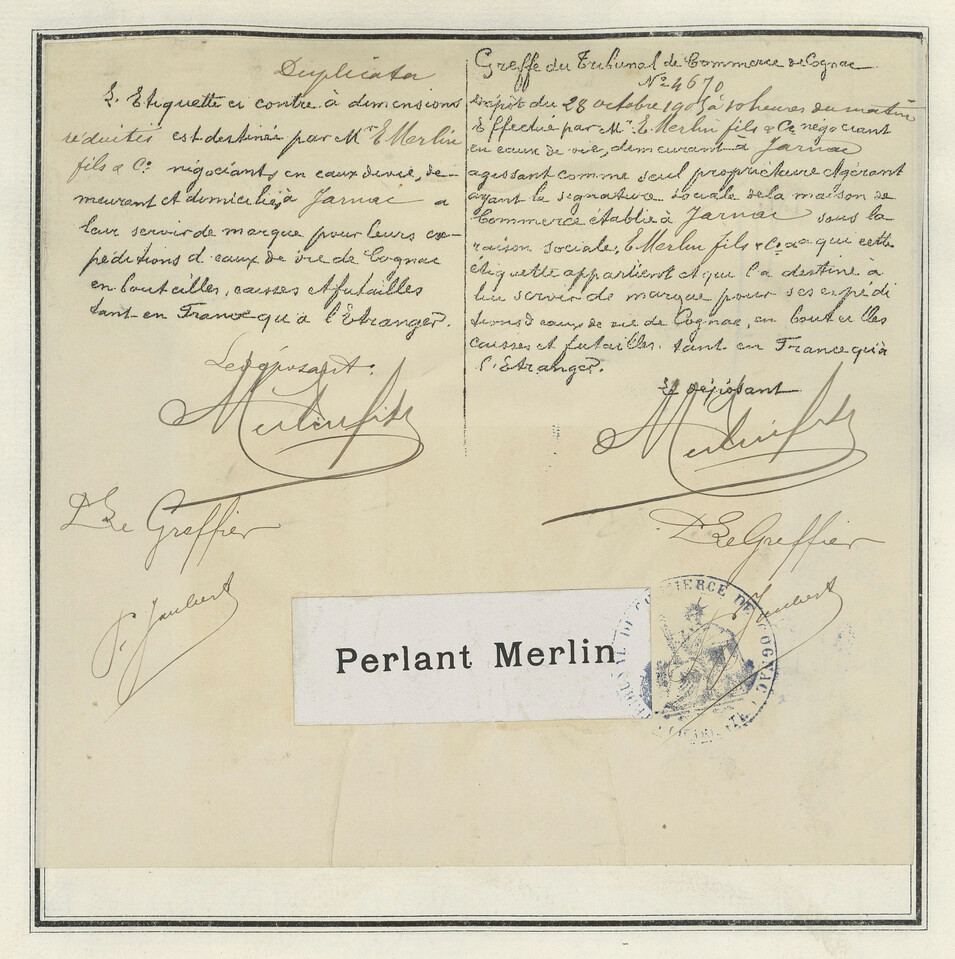 Duplicata
L'Etiquette ci contre à dimensions
réduites est destinée par Mr E Merlin
fils & Co négociants en eaux de vie, de-
meurant et domiciliés à Jarnac a
leur servir de marque pour leurs ex-
péditions d'eaux de vie de Cognac
en bouteilles, caisses et futailles
tant en France qu'à l'Etranger.
Le déposant.
Merlin fils
Le Greffier
P. Jaubert
Greffe du Tribunal de Commerce de Cognac
No 4670
Dépôt du 28 octobre 1905 à 10 heures du matin
Effectué par Mr E Merlin fils & Co négociant
en eaux de vie, demeurant à Jarnac
agissant comme seul propriétaire & gérant
ayant la signature sociale de la maison de
Commerce établie à Jarnac sous la
raison sociale, E Merlin fils & Co a qui cette
étiquette appartient et qui l'a destine à
lui servir de marque pour ses expédi
tions d'eaux de vie de Cognac, en bouteilles
caisses et futailles. tant en France qu'à
l'Etranger.
Le déposant
Merlin fils
Le Greffier
Jaubert
Perlant Merlin
TRIBUNAL DE COMMERCE DE COGNAC